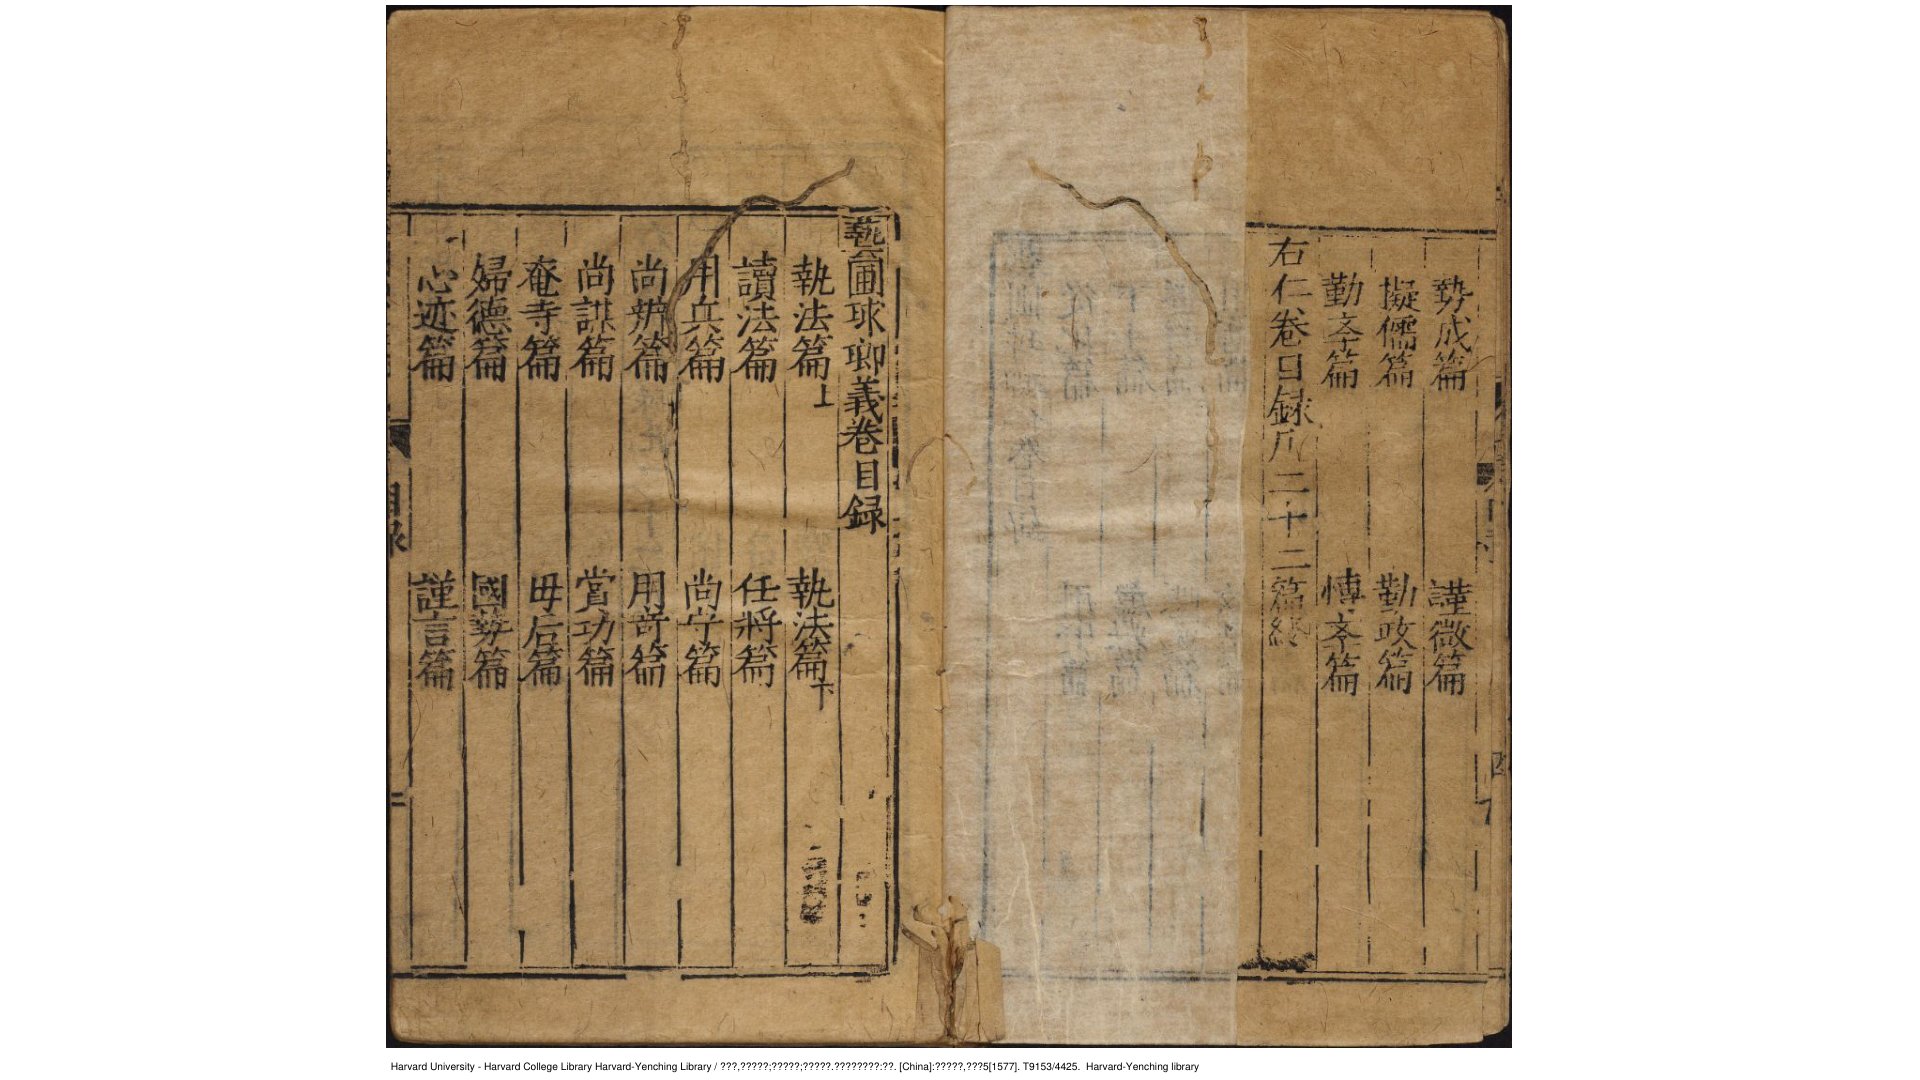 勢成篇 謹微篇
擬儒篇 勤政篇
勤孝篇 愽孝篇
右仁卷目録凡二十二篇終
藝圃球瑯義卷目録
執法篇上 執法篇下
讀法篇 任將篇
用兵篇 尚守篇
尚辨篇 用竒篇
尚謀篇 賞功篇
奄寺篇 毋后篇
婦德篇 國勢篇
心迹篇 謹言篇
目録
二
Harvard University - Harvard College Library Harvard-Yenching Library / ???,?????;?????;?????.????????:??. [China]:?????,???5[1577]. T9153/4425. Harvard-Yenching library